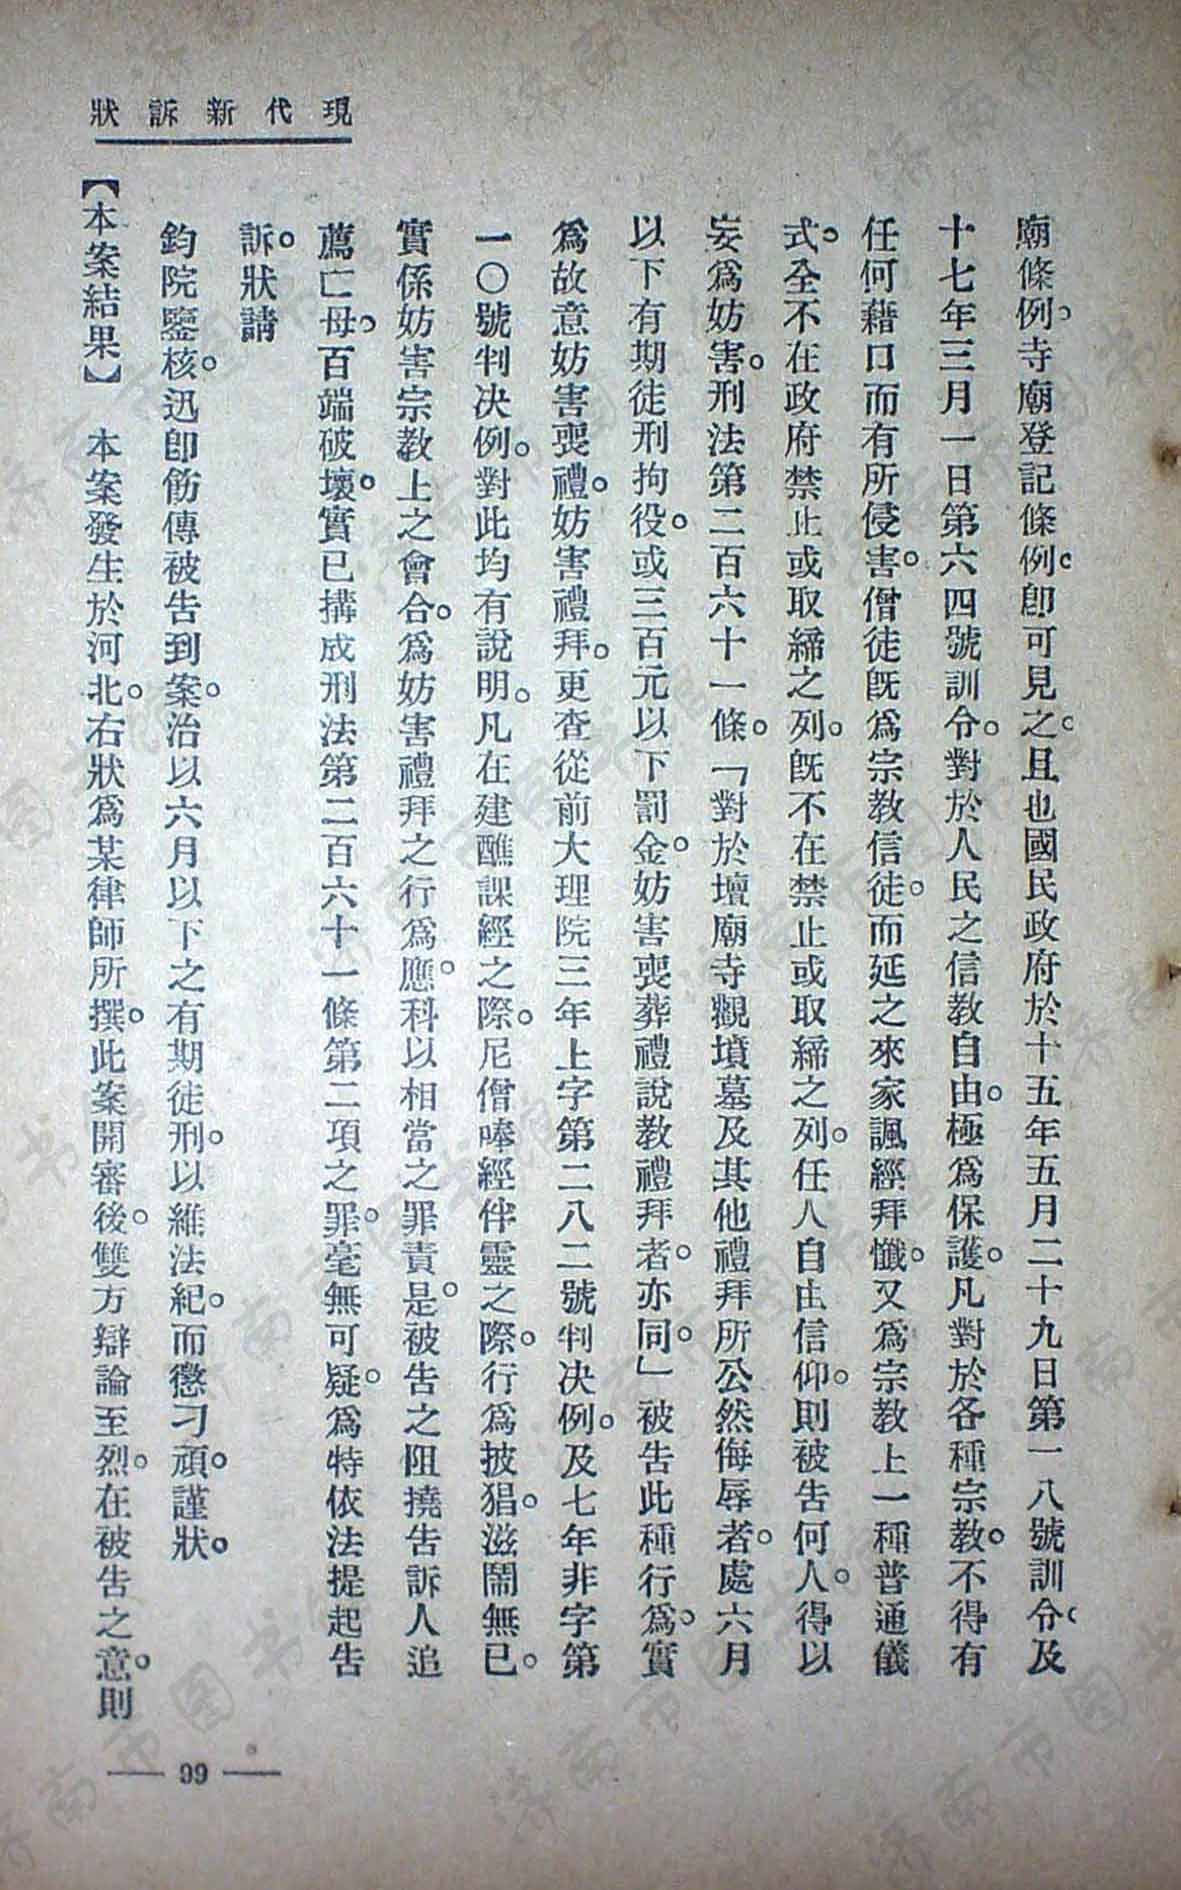 現代新訴狀
廟條例。寺廟登記條例。卽可見之。且也國民政府於十五年五月二十九日第一八號訓令。及
十七年三月一日第六四號訓令。對於人民之信教自由。極爲保護。凡對於各種宗教。不得有
任何藉口而有所侵害。僧徒旣爲宗教信徒。而延之來家諷經拜懺。又爲宗教上一種普通儀
式。全不在政府禁止或取締之列。旣不在禁止或取締之列。任人自由信仰。則被告何人。得以
妄爲妨害。刑法第二百六十一條。「對於壇廟寺觀墳墓及其他禮拜所公然侮辱者。處六月
以下有期徒刑拘役。或三百元以下罰金。妨害喪葬禮說教禮拜者。亦同。」被告此種行爲。實
爲故意妨害喪禮。妨害禮拜。更查從前大理院三年上字第二八二號判决例。及七年非字第
一〇號判决例。對此均有說明。凡在建醮諜經之際。尼僧唪經伴靈之際。行爲披猖。滋鬧無已。
實係妨害宗教上之會合。爲妨害禮拜之行爲。應科以相當之罪責。是被告之阻撓告訴人追
薦亡母。百端破壞。實已搆成刑法第二百六十一條第二項之罪。毫無可疑。爲特依法提起告
訴。狀請
鈞院鑒核。迅卽飭傳被告到案。治以六月以下之有期徒刑。以維法紀。而懲刁頑。謹狀。
【本案結果】 本案發生於河北。右狀爲某律師所撰。此案開審後。雙方辯論至烈。在被告之意。則
— 99 —
济南市图书馆